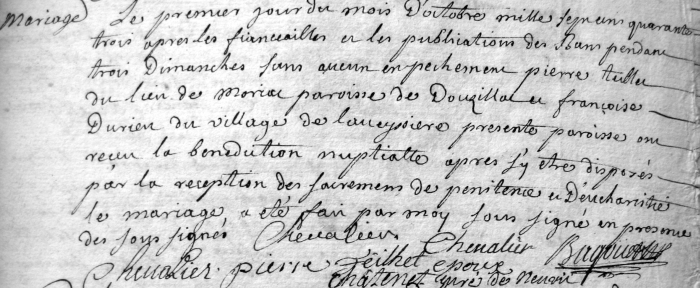 Mariage Le premier jour du mois D'octobre mille sept cens quarante
trois apres les fiancailles et les publications des Bans pendant
trois Dimanches sans aucun enpechement pierre
du lien de Moriac paroisse de Douzillac et françoise
Durieu du village de laveyssiere presente paroisse ont
receu la benediction nuptialle apres s'y etre disposés
par la reception des sacremens de penitence et D'eucharistie
le mariage a eté fait par moy sous signé en presence
des sous signés Chevalier Chevalier
Chevalier pierre Teilhet epoux
Chatenet curé de Neuvic